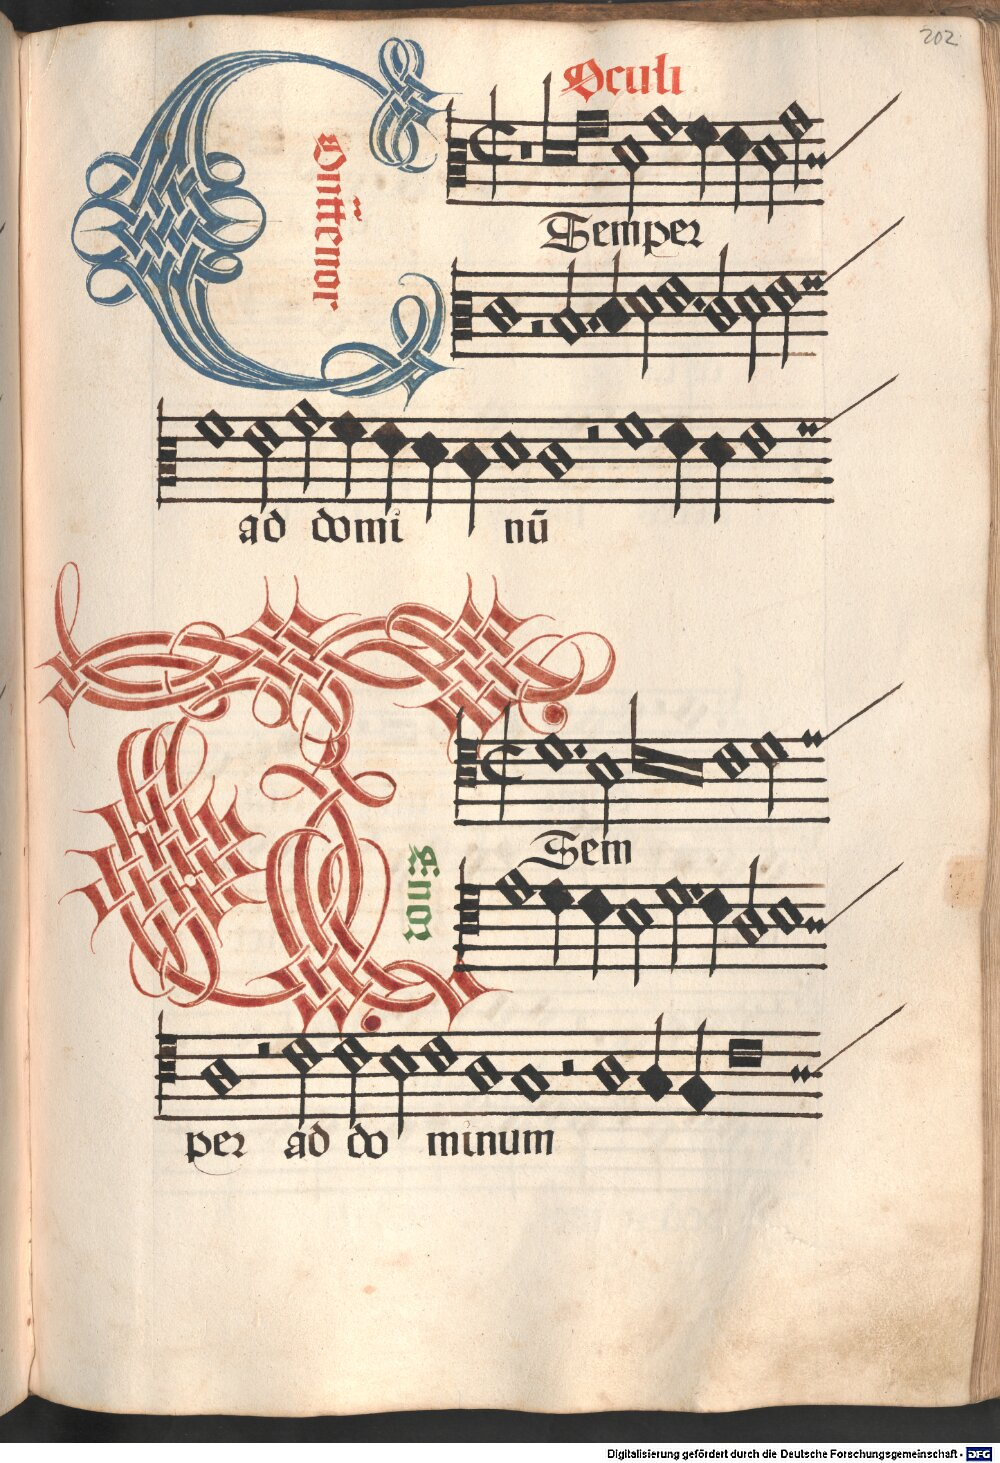 202
Oculi
Cōntratenor
Semper
ad domi nū
Tenor
Sem
per ad do minum
Digitalisierung gefördert durch die Deutsche Forschungsgemeinschaft - DFG